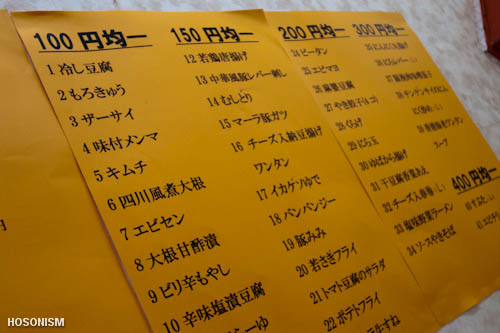 100 円均一
1 冷し豆腐
2 もろきゅう
3 ザーサイ
4 味付メンマ
5 キムチ
6 四川風煮大根
7 エビセン
8 大根甘酢漬
9 ピリ辛もやし
10 辛味塩漬豆腐
150 円均一
12 若鶏唐揚げ
13 中華風豚レバー刺し
14 むしどり
15 マーラ豚ガツ
16 チーズ入納豆揚げ
ワンタン
17 イカゲソゆで
18 バンバンジー
19 豚みみ
20 若さぎフライ
21 トマト豆腐のサラダ
22 ポテトフライ
200 円均一
24 ピータン
25 エビマヨ
26 麻婆豆腐
27 やき餃子(4コ)
28 くらげ
29 にら玉
30 ゆばから揚げ
31 干豆腐香菜あえ
32 チーズ入春巻
33 塩味野菜ラーメン
34 ソースやきそば
300 円均一
35 にんにく丸揚げ
スープ
400 円均一
HOSONISM